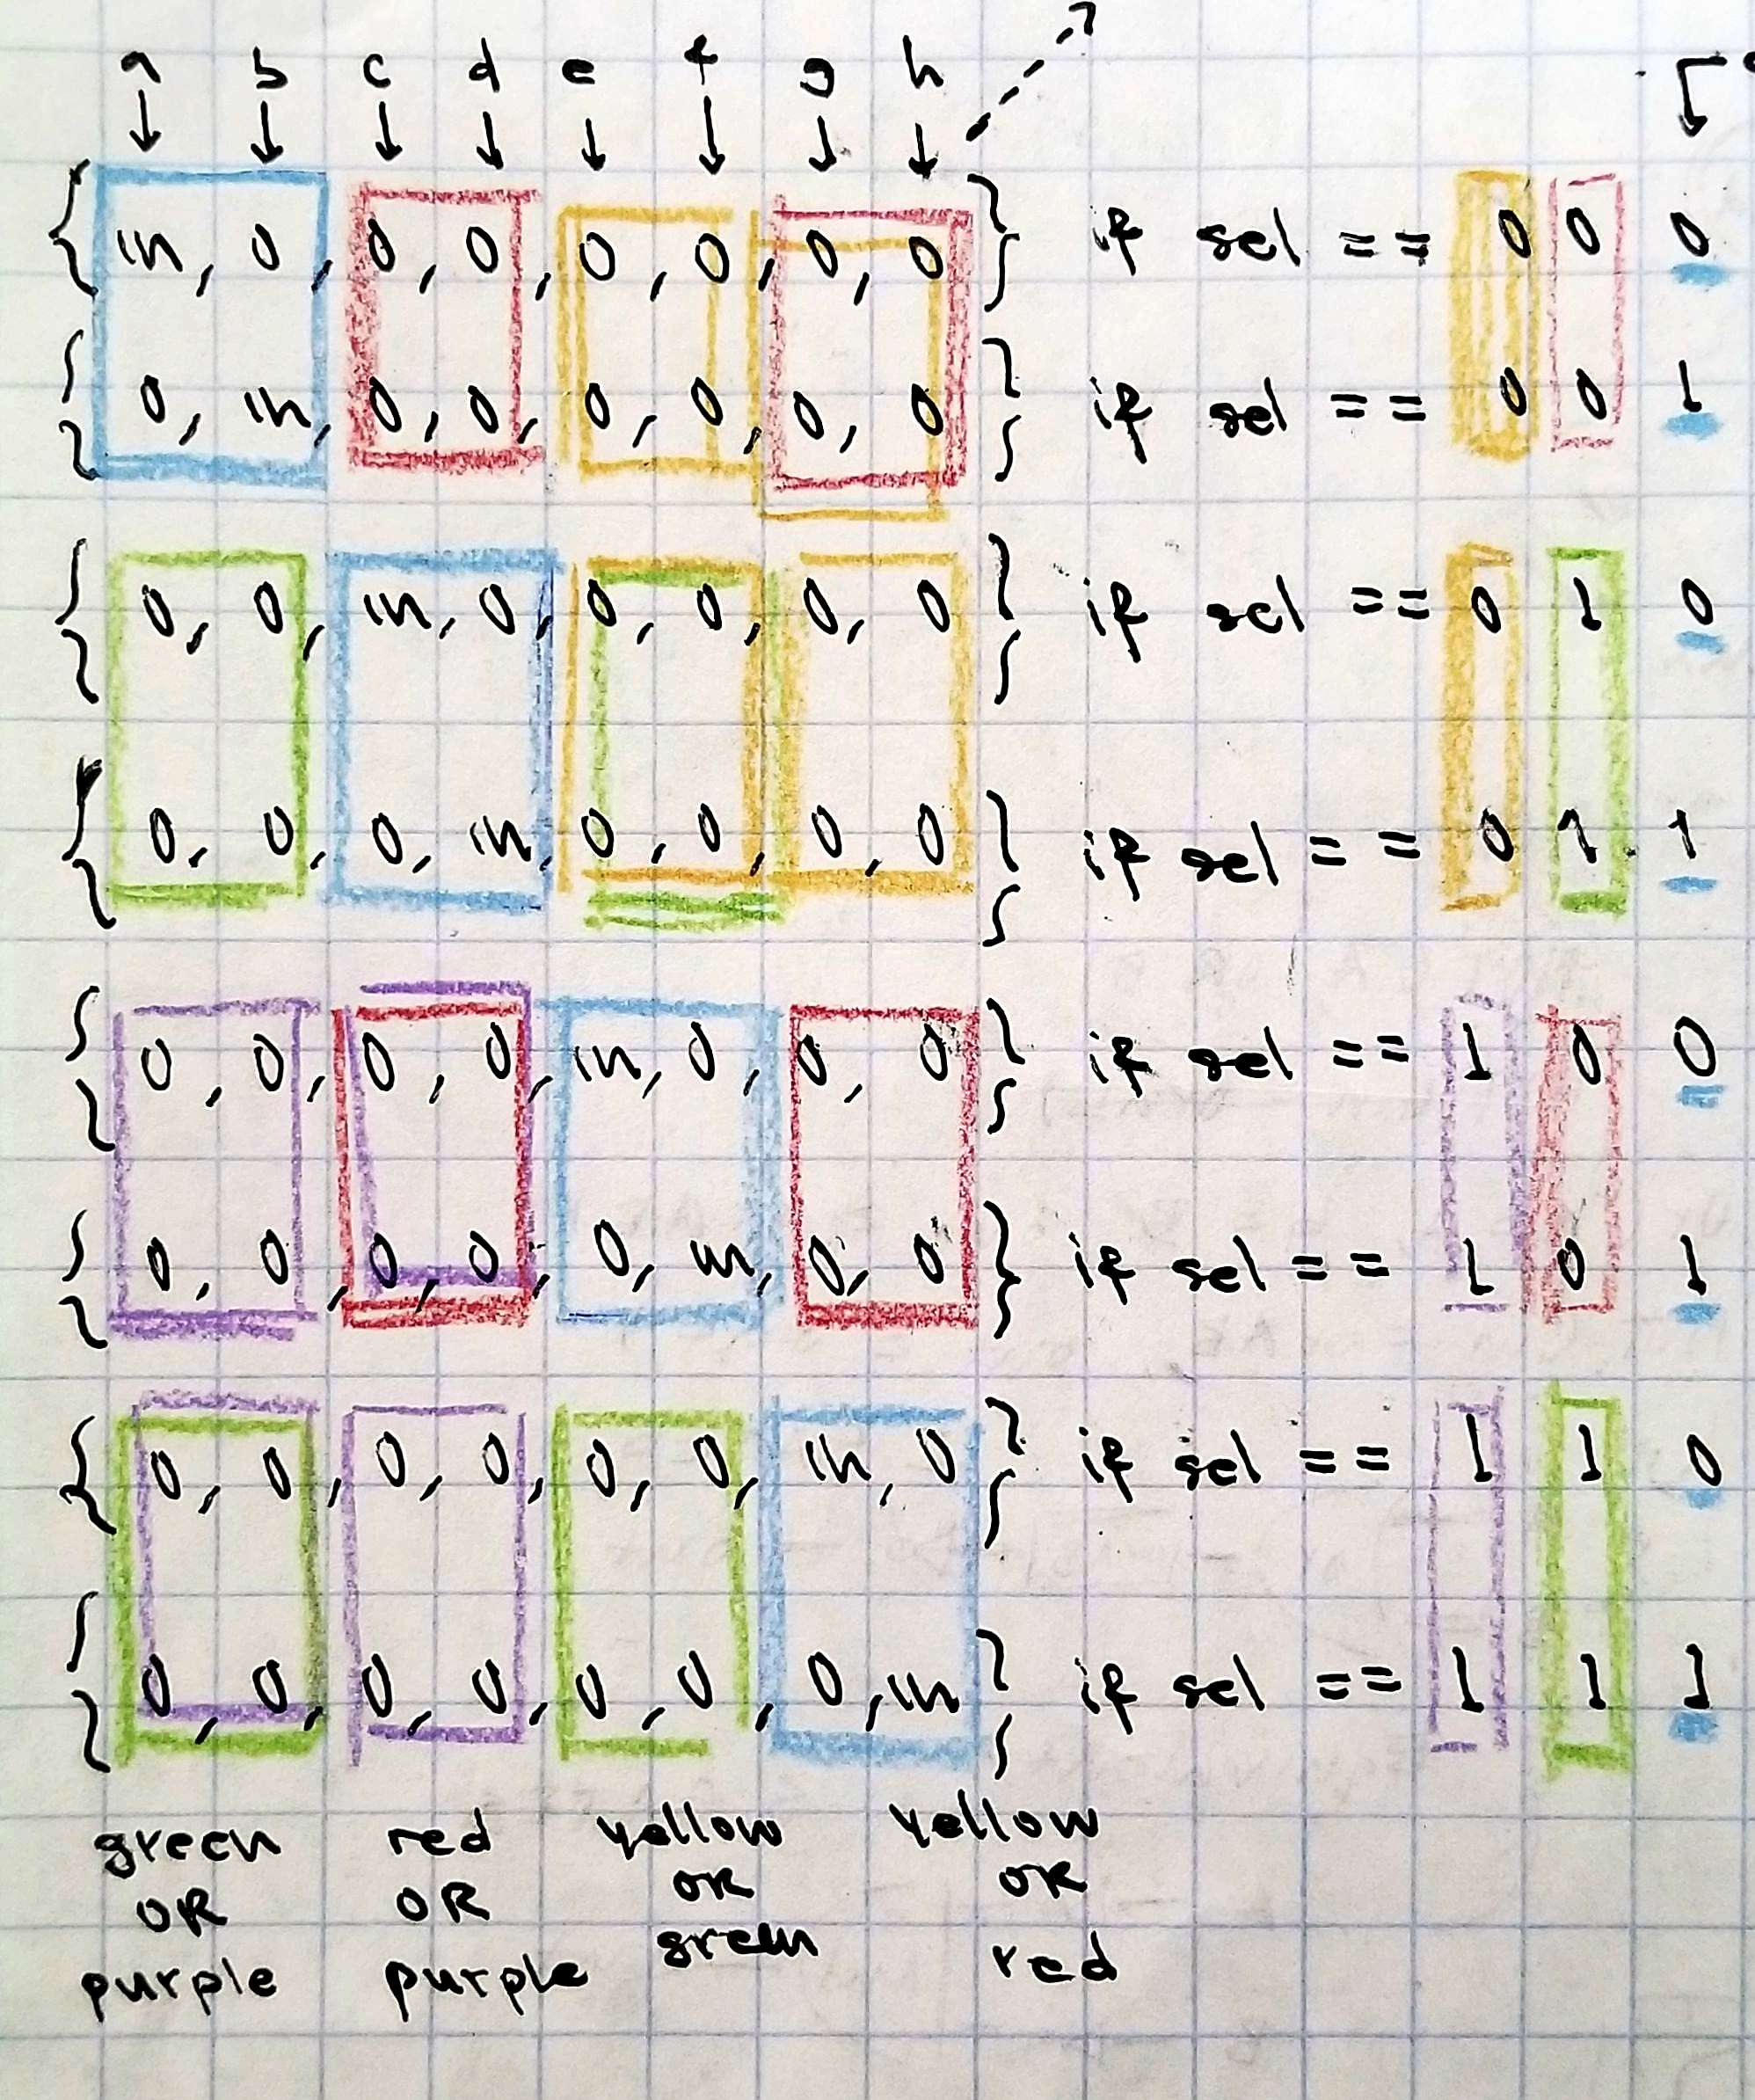 a b c d e f g h
{ in, 0, 0, 0, 0, 0, 0, 0 } if sel == 0 0 0
{ 0, in, 0, 0, 0, 0, 0, 0 } if sel == 0 0 1
{ 0, 0, in, 0, 0, 0, 0, 0 } if sel == 0 1 0
{ 0, 0, 0, in, 0, 0, 0, 0 } if sel == 0 1 1
{ 0, 0, 0, 0, in, 0, 0, 0 } if sel == 1 0 0
{ 0, 0, 0, 0, 0, in, 0, 0 } if sel == 1 0 1
{ 0, 0, 0, 0, 0, 0, in, 0 } if sel == 1 1 0
{ 0, 0, 0, 0, 0, 0, 0, in } if sel == 1 1 1
green red yellow yellow
OR OR OR OR
purple purple green red